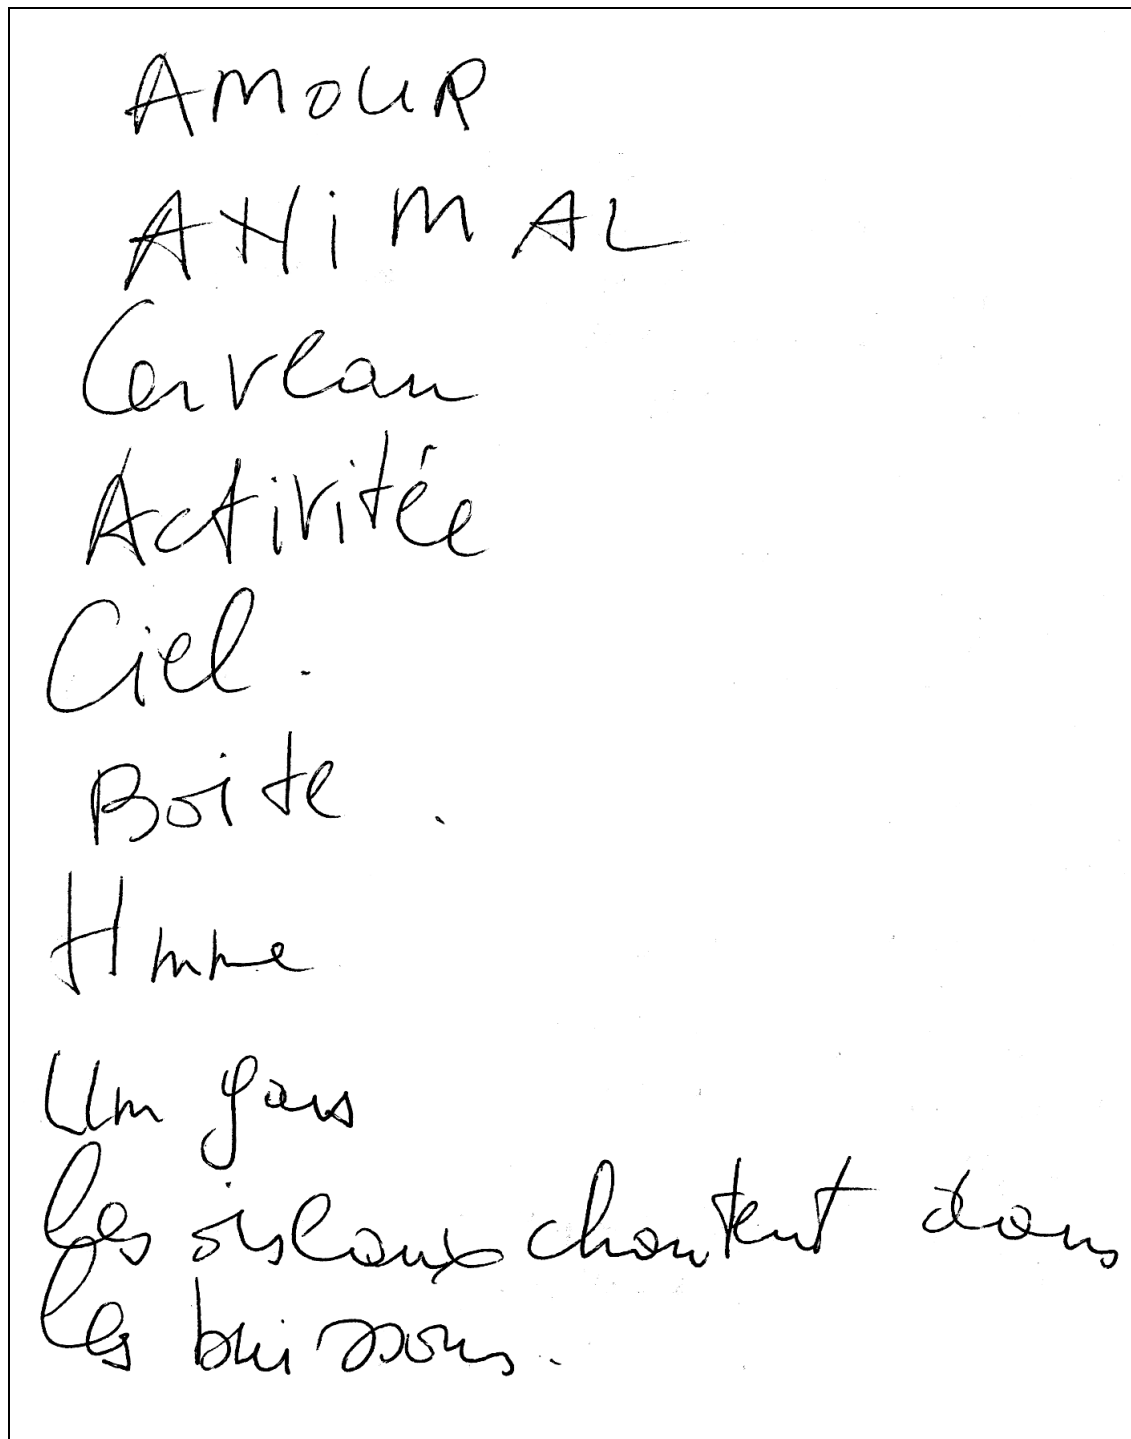 AMOUR
ANiMAL
Cerveau
Activitée
Ciel.
Boite.
Homme
Un gars
Les oiseaux chantent dans
les buissons.